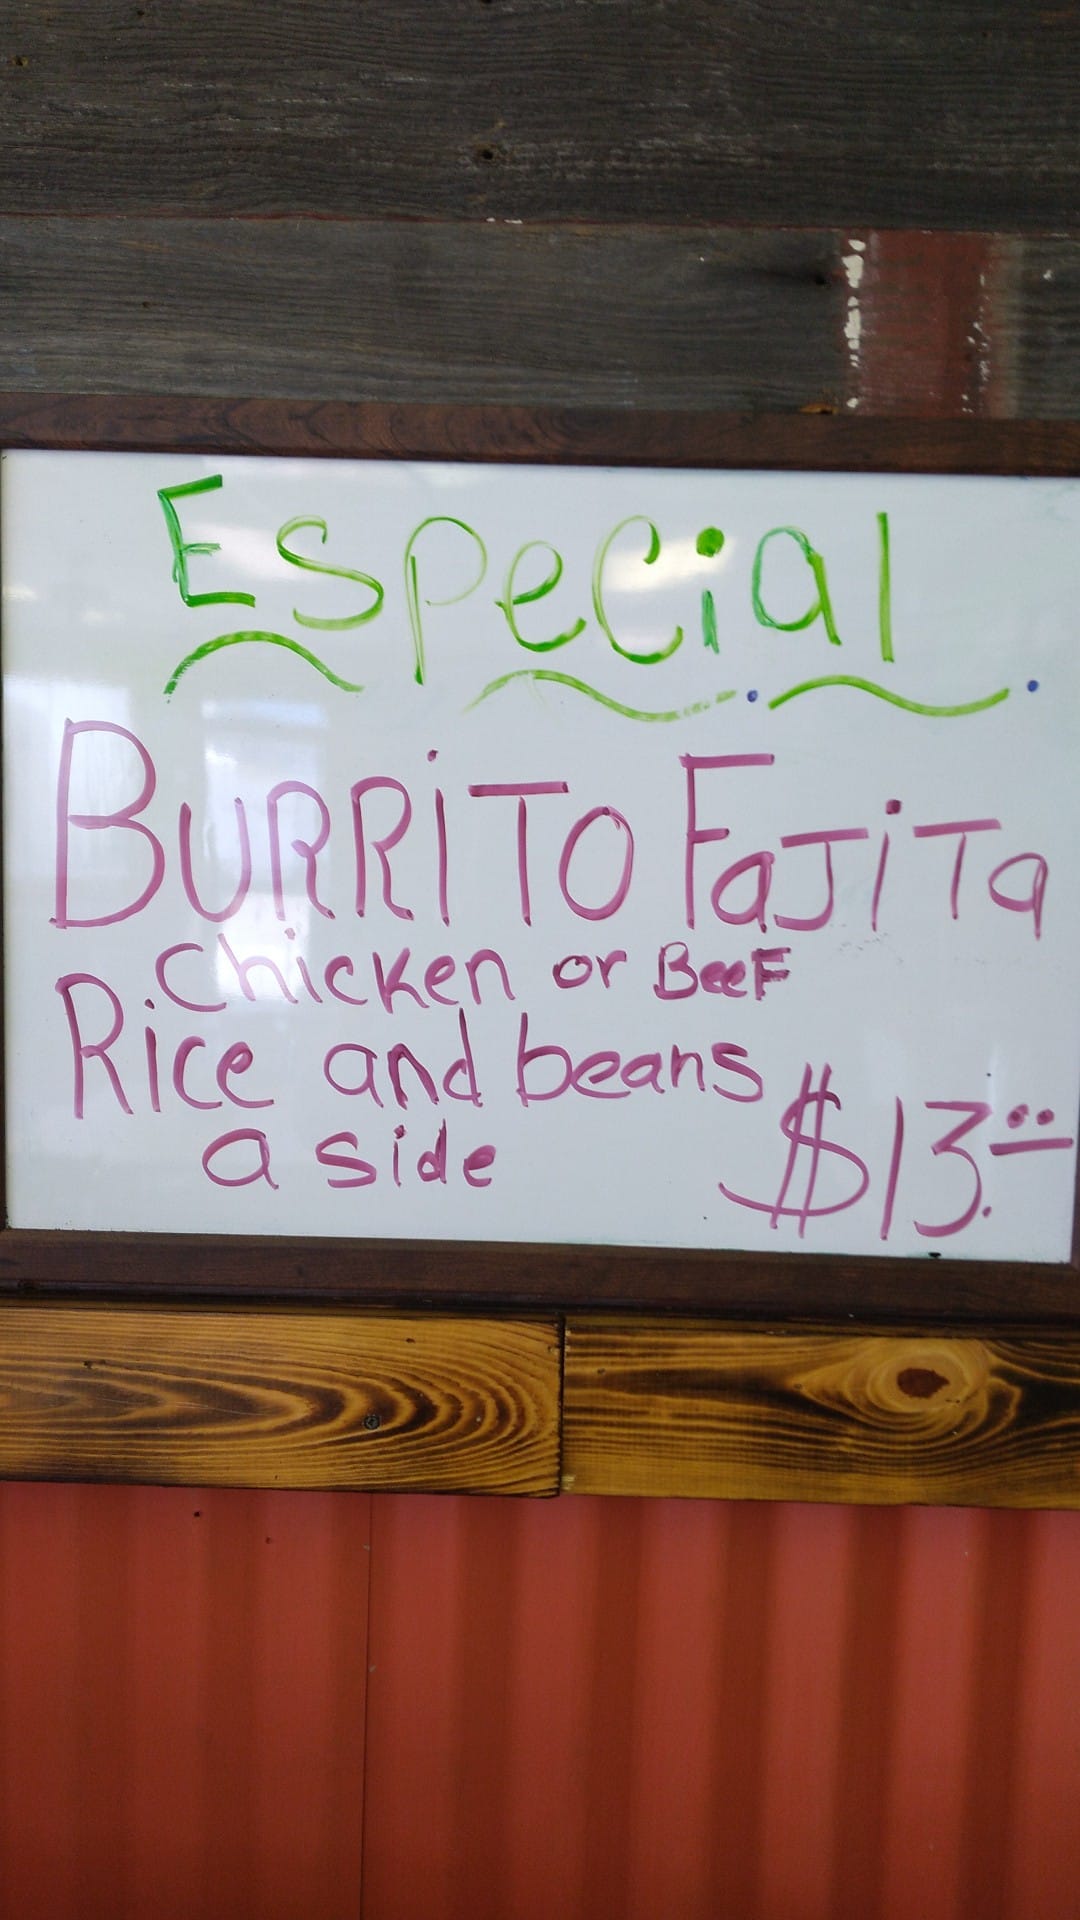 Especial
BURRiTO FaJiTa
chicken or BeeF
Rice and beans
a side
$13.00